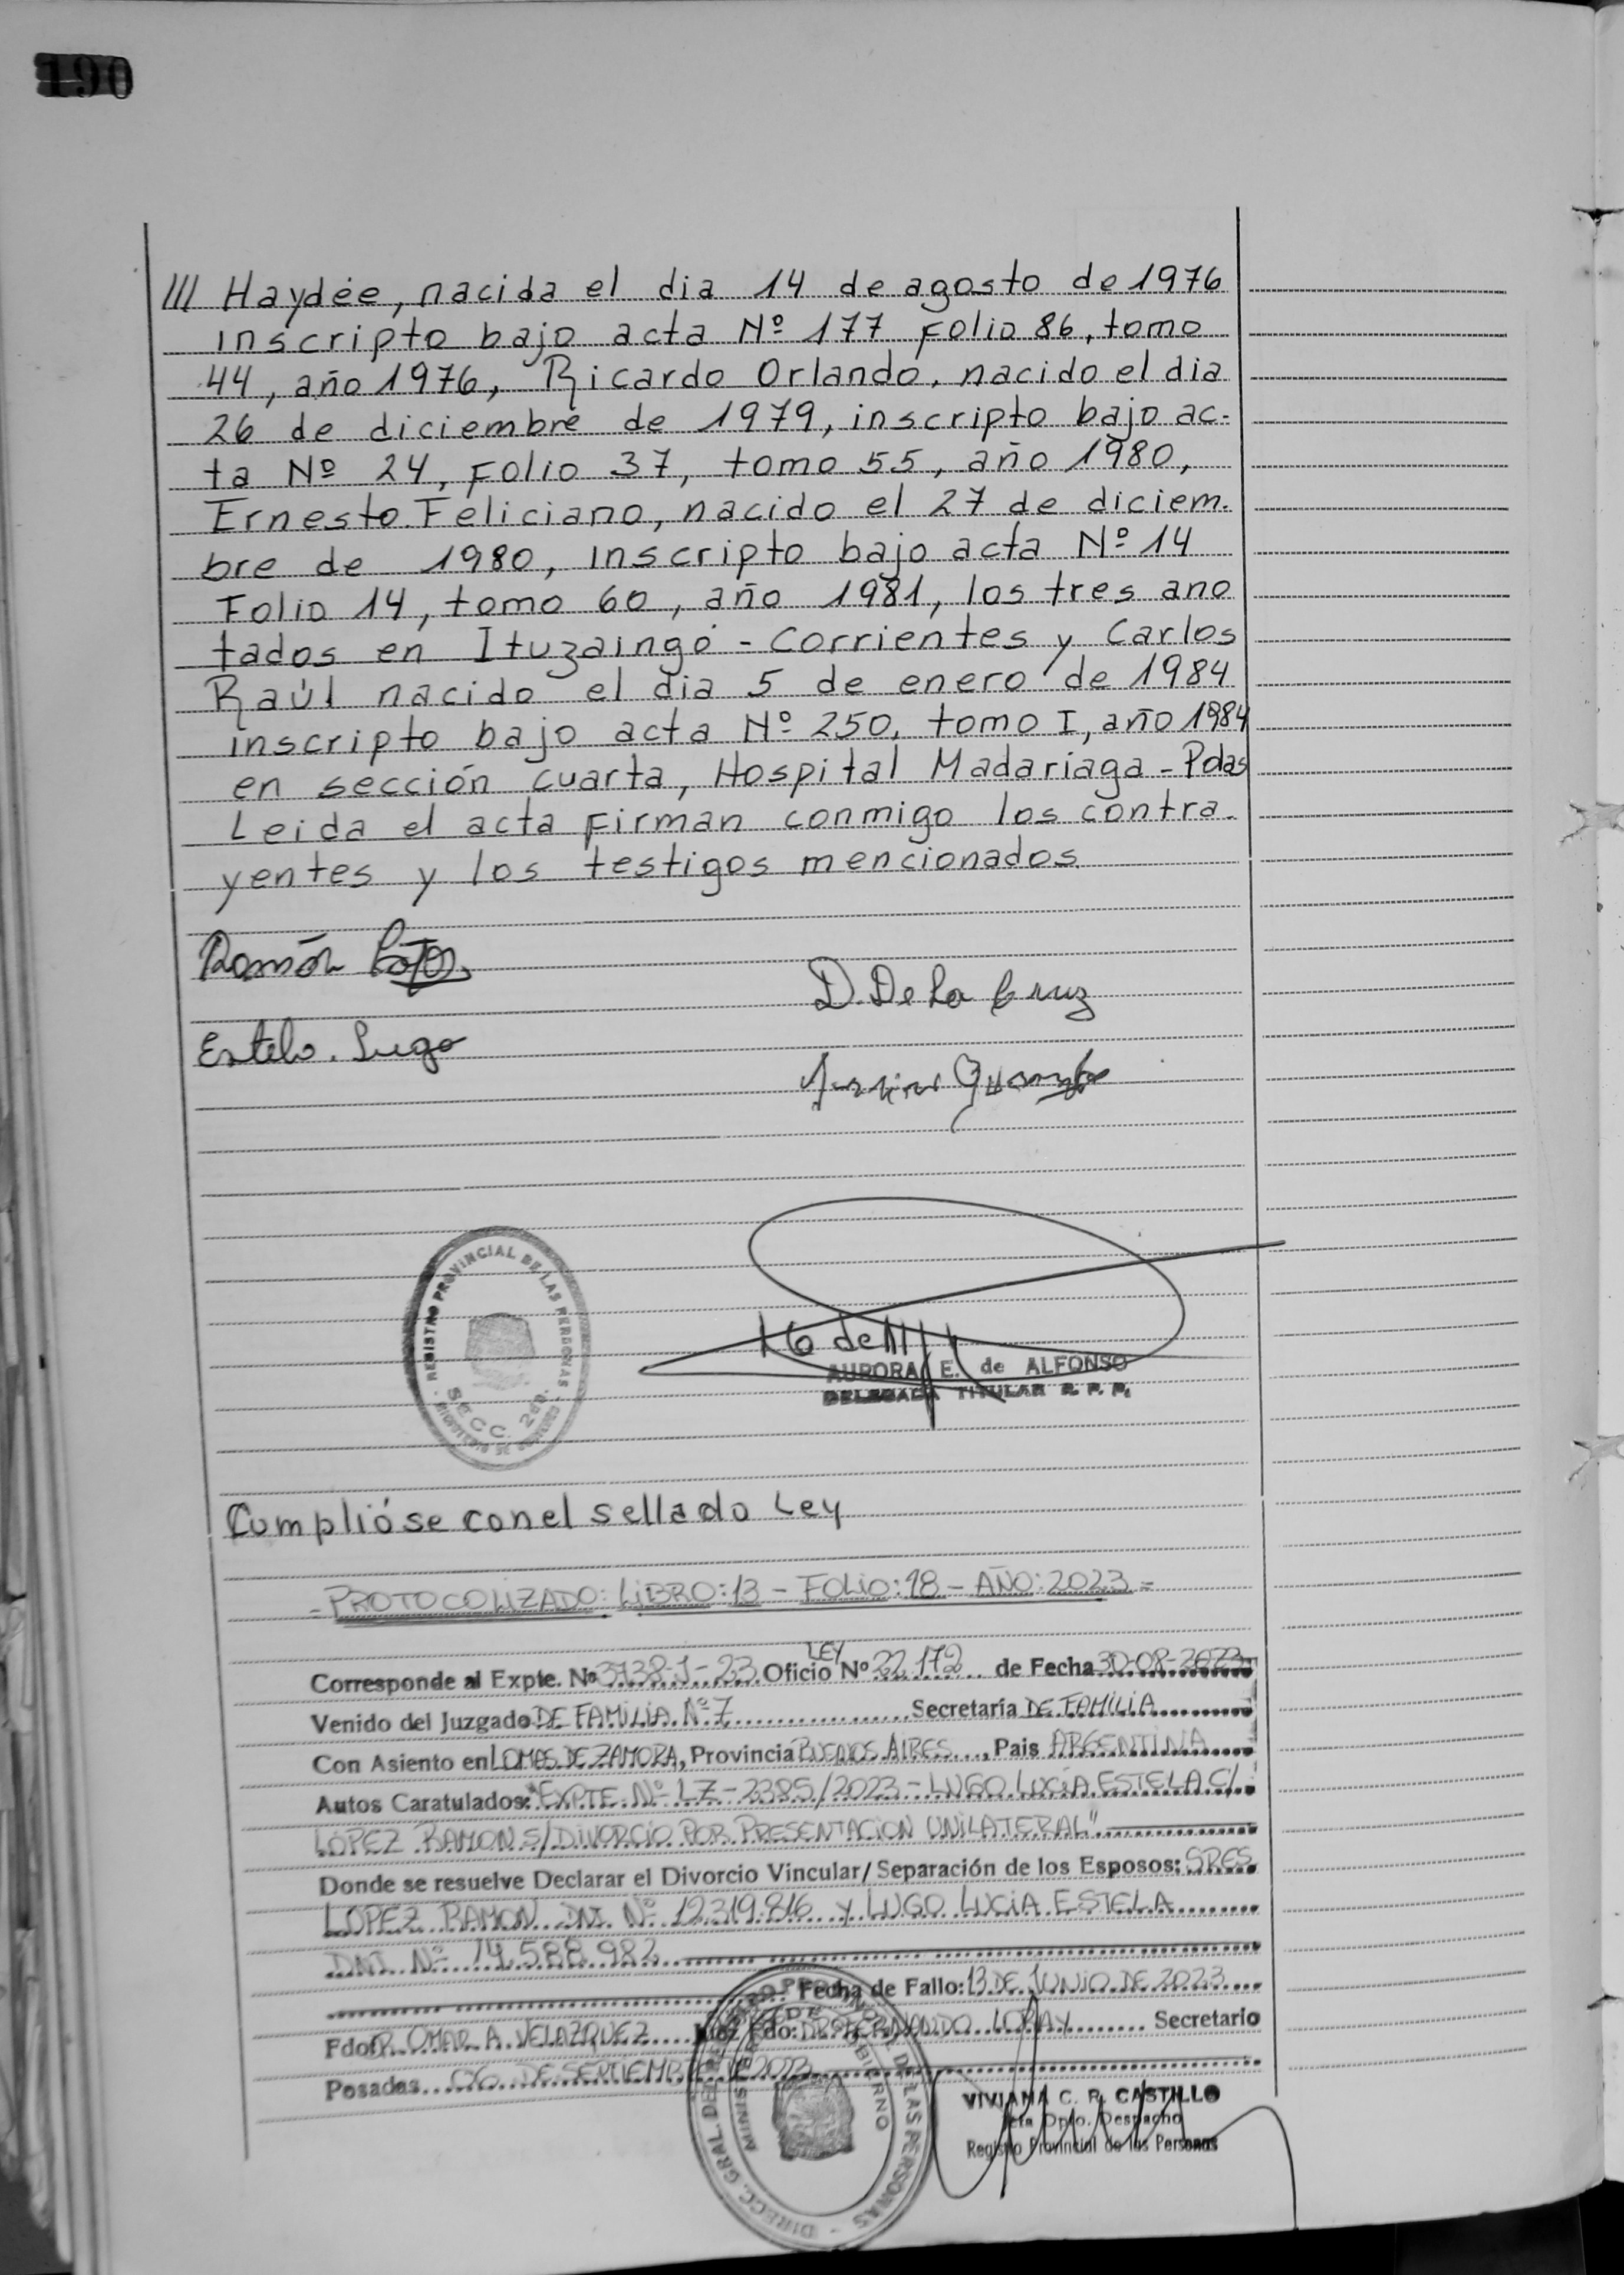 190
/// Haydée, nacida el dia 14 de agosto de 1976
inscripto bajo acta Nº 177 Folio 86, tomo
44, año 1976, Ricardo Orlando, nacido el dia
26 de diciembre de 1979, inscripto bajo ac-
ta Nº 24, Folio 37, tomo 55, año 1980,
Ernesto Feliciano, nacido el 27 de diciem-
bre de 1980, inscripto bajo acta Nº 14
Folio 14, tomo 60, año 1981, los tres ano
tados en Ituzaingó - Corrientes y Carlos
Raúl nacido el dia 5 de enero de 1984
inscripto bajo acta Nº 250, tomo I, año 1984
en sección cuarta, Hospital Madariaga - Pdas
Leida el acta Firman conmigo los contra-
yentes y los testigos mencionados.
Ramón
D. De La Cruz
Estela. Lugo
REGISTRO PROVINCIAL DE LAS PERSONAS
SECC. 2da.
AURORA E. de ALFONSO
DELEGADA TITULAR R. P. P.
Cumplióse con el sellado Ley
- PROTOCOLIZADO: LIBRO: 13 - FOLIO: 18 - AÑO: 2023 -
LEY
Corresponde al Expte. Nº 3738-J-23 Oficio Nº 22.172 de Fecha 30-08-2023
Venido del Juzgado DE FAMILIA Nº 7 Secretaría DE FAMILIA
Con Asiento en LOMAS DE ZAMORA, Provincia BUENOS AIRES, Pais ARGENTINA
Autos Caratulados: "EXPTE Nº LZ-2385/2023 - LUGO LUCÍA ESTELA C/
LÓPEZ RAMON S/ DIVORCIO POR PRESENTACION UNILATERAL"
Donde se resuelve Declarar el Divorcio Vincular/Separación de los Esposos: SRES
LOPEZ RAMON DNI Nº 12.319.816 y LUGO LUCIA ESTELA
DNI Nº 14.588.982
Fecha de Fallo: 13 DE JUNIO DE 2023
Fdo DR. OMAR A. VELAZQUEZ Juez Fdo: DR. FERNANDO LORAY Secretario
Posadas 06 DE SEPTIEMBRE 2023
DIRECC. GRAL. DEL REGISTRO PROVINCIAL DE LAS PERSONAS
MINISTERIO DE GOBIERNO
VIVIANA C. R. CASTILLO
Jefa Dpto. Despacho
Registro Provincial de las Personas